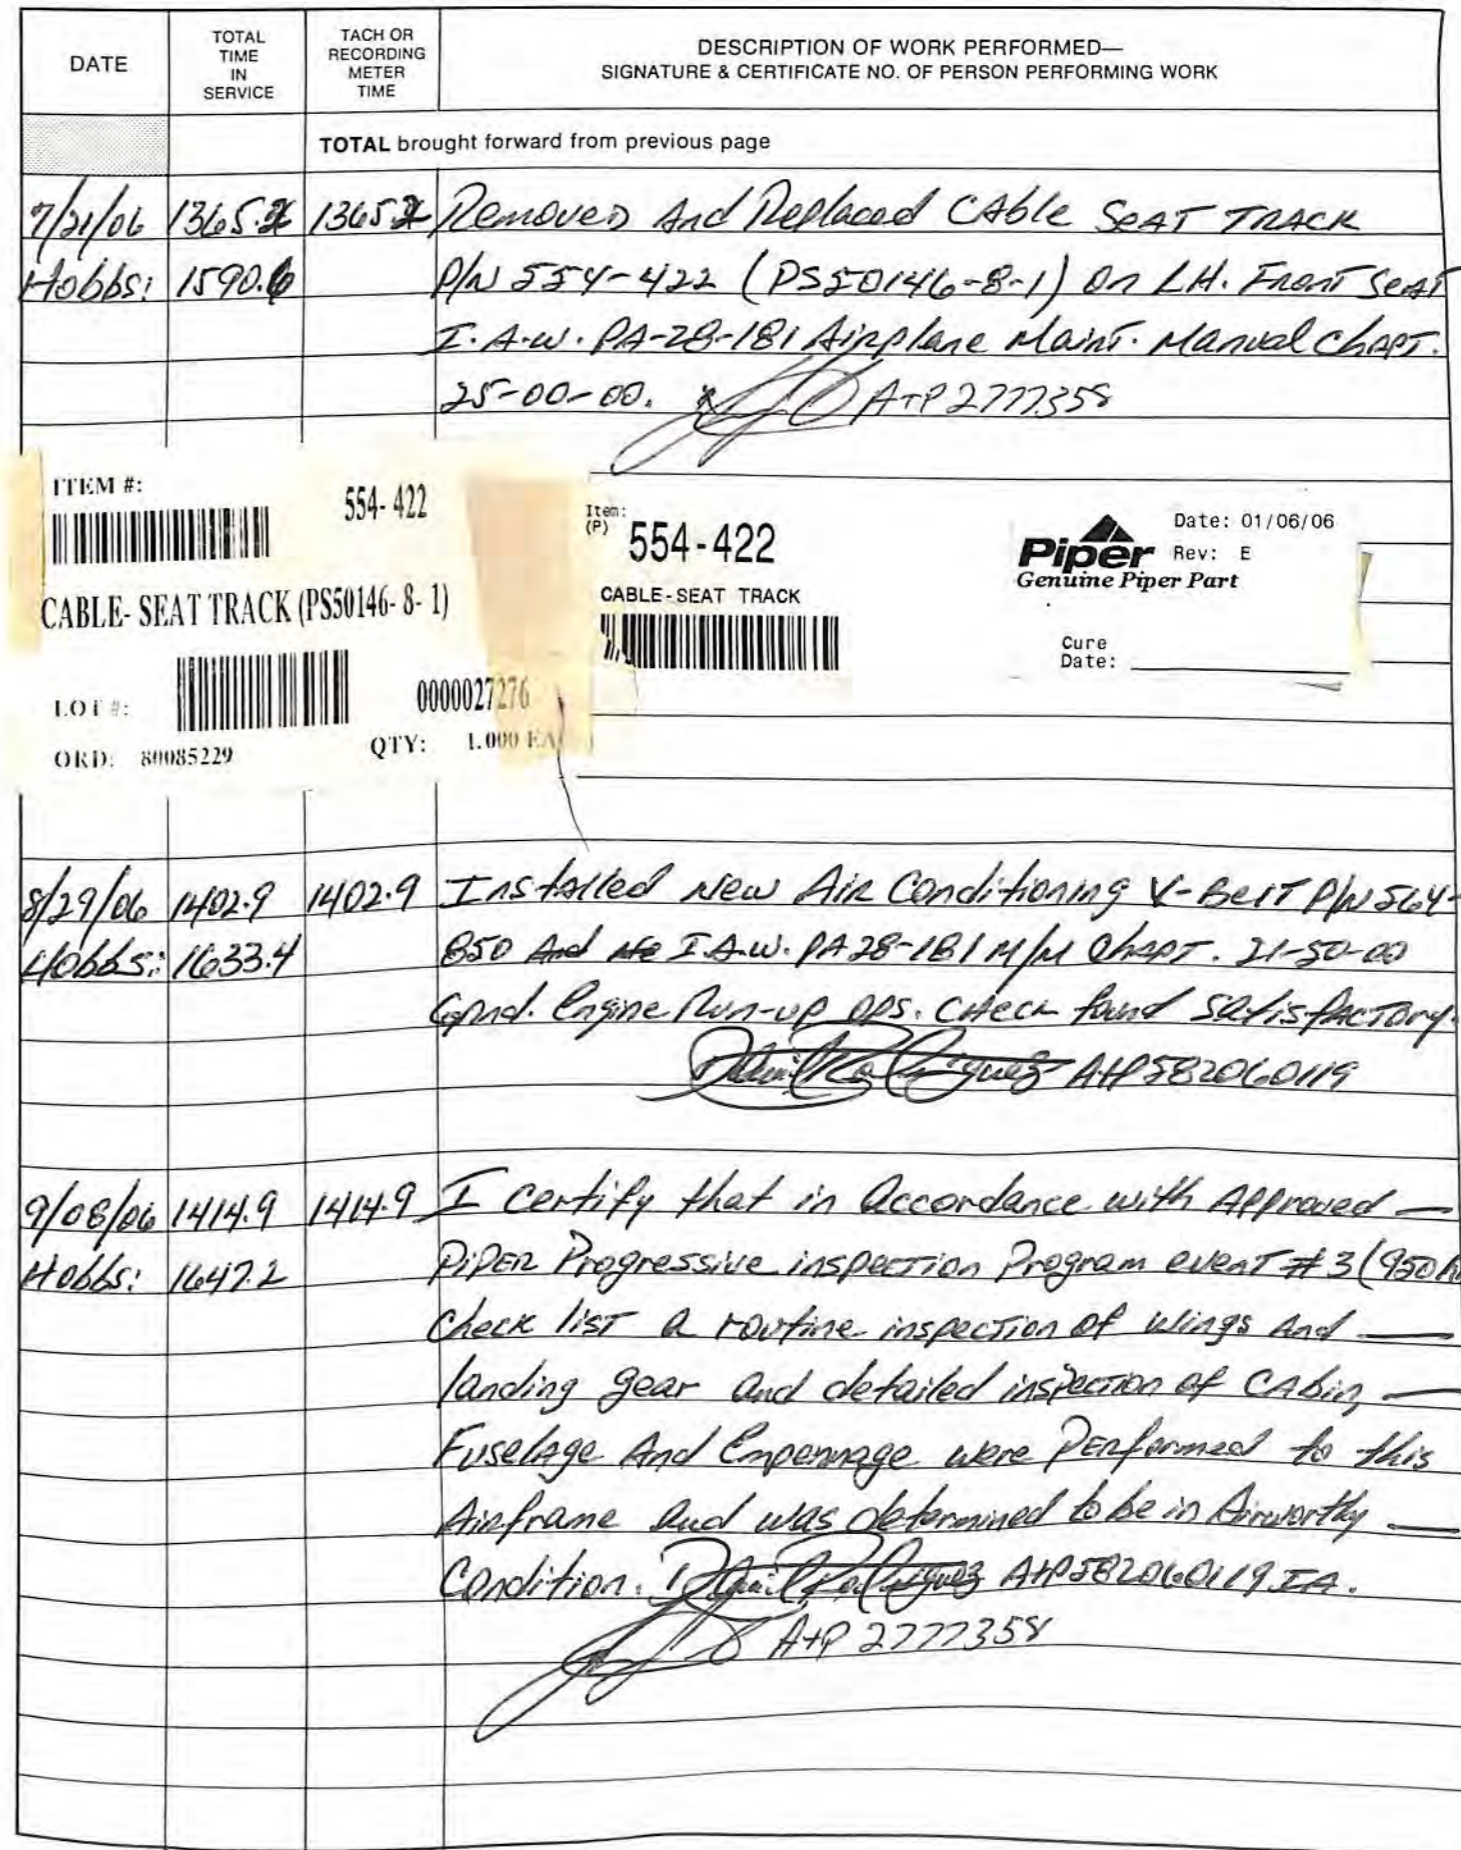 DATE
TOTAL TIME IN SERVICE
TACH OR RECORDING METER TIME
DESCRIPTION OF WORK PERFORMED—
SIGNATURE & CERTIFICATE NO. OF PERSON PERFORMING WORK
TOTAL brought forward from previous page
7/21/06 1365.2 1365.2 Removed And Replaced CAble SEAT TRACK
Hobbs: 1590.6 P/N 554-422 (PS50146-8-1) on LH. Front Seat
I.A.W. PA-28-181 Airplane Maint. Manual Chapt.
25-00-00. A+P 2777358
ITEM #: 554-422
CABLE- SEAT TRACK (PS50146- 8- 1)
LOT #: 0000027276
ORD: 80085229 QTY: 1.000 EA
Item: (P) 554-422
CABLE-SEAT TRACK
Piper
Genuine Piper Part
Date: 01/06/06
Rev: E
Cure Date:
8/29/06 1402.9 1402.9 Installed New Air Conditioning V-Belt P/N 564-
Hobbs: 1633.4 850 And I.A.W. PA28-181 M/M Chapt. 21-50-00
Grnd. Engine Run-up ops. check found satisfactory.
A+P582060119
9/08/06 1414.9 1414.9 I certify that in accordance with Approved —
Hobbs: 1647.2 PIPER Progressive inspection Program event #3 (950 h
check list a routine inspection of wings and —
landing gear and detailed inspection of CAbin, —
Fuselage And Empennage were Performed to this
Airframe and was determined to be in Airworthy —
Condition. A+P582060119 IA.
A+P 2777358